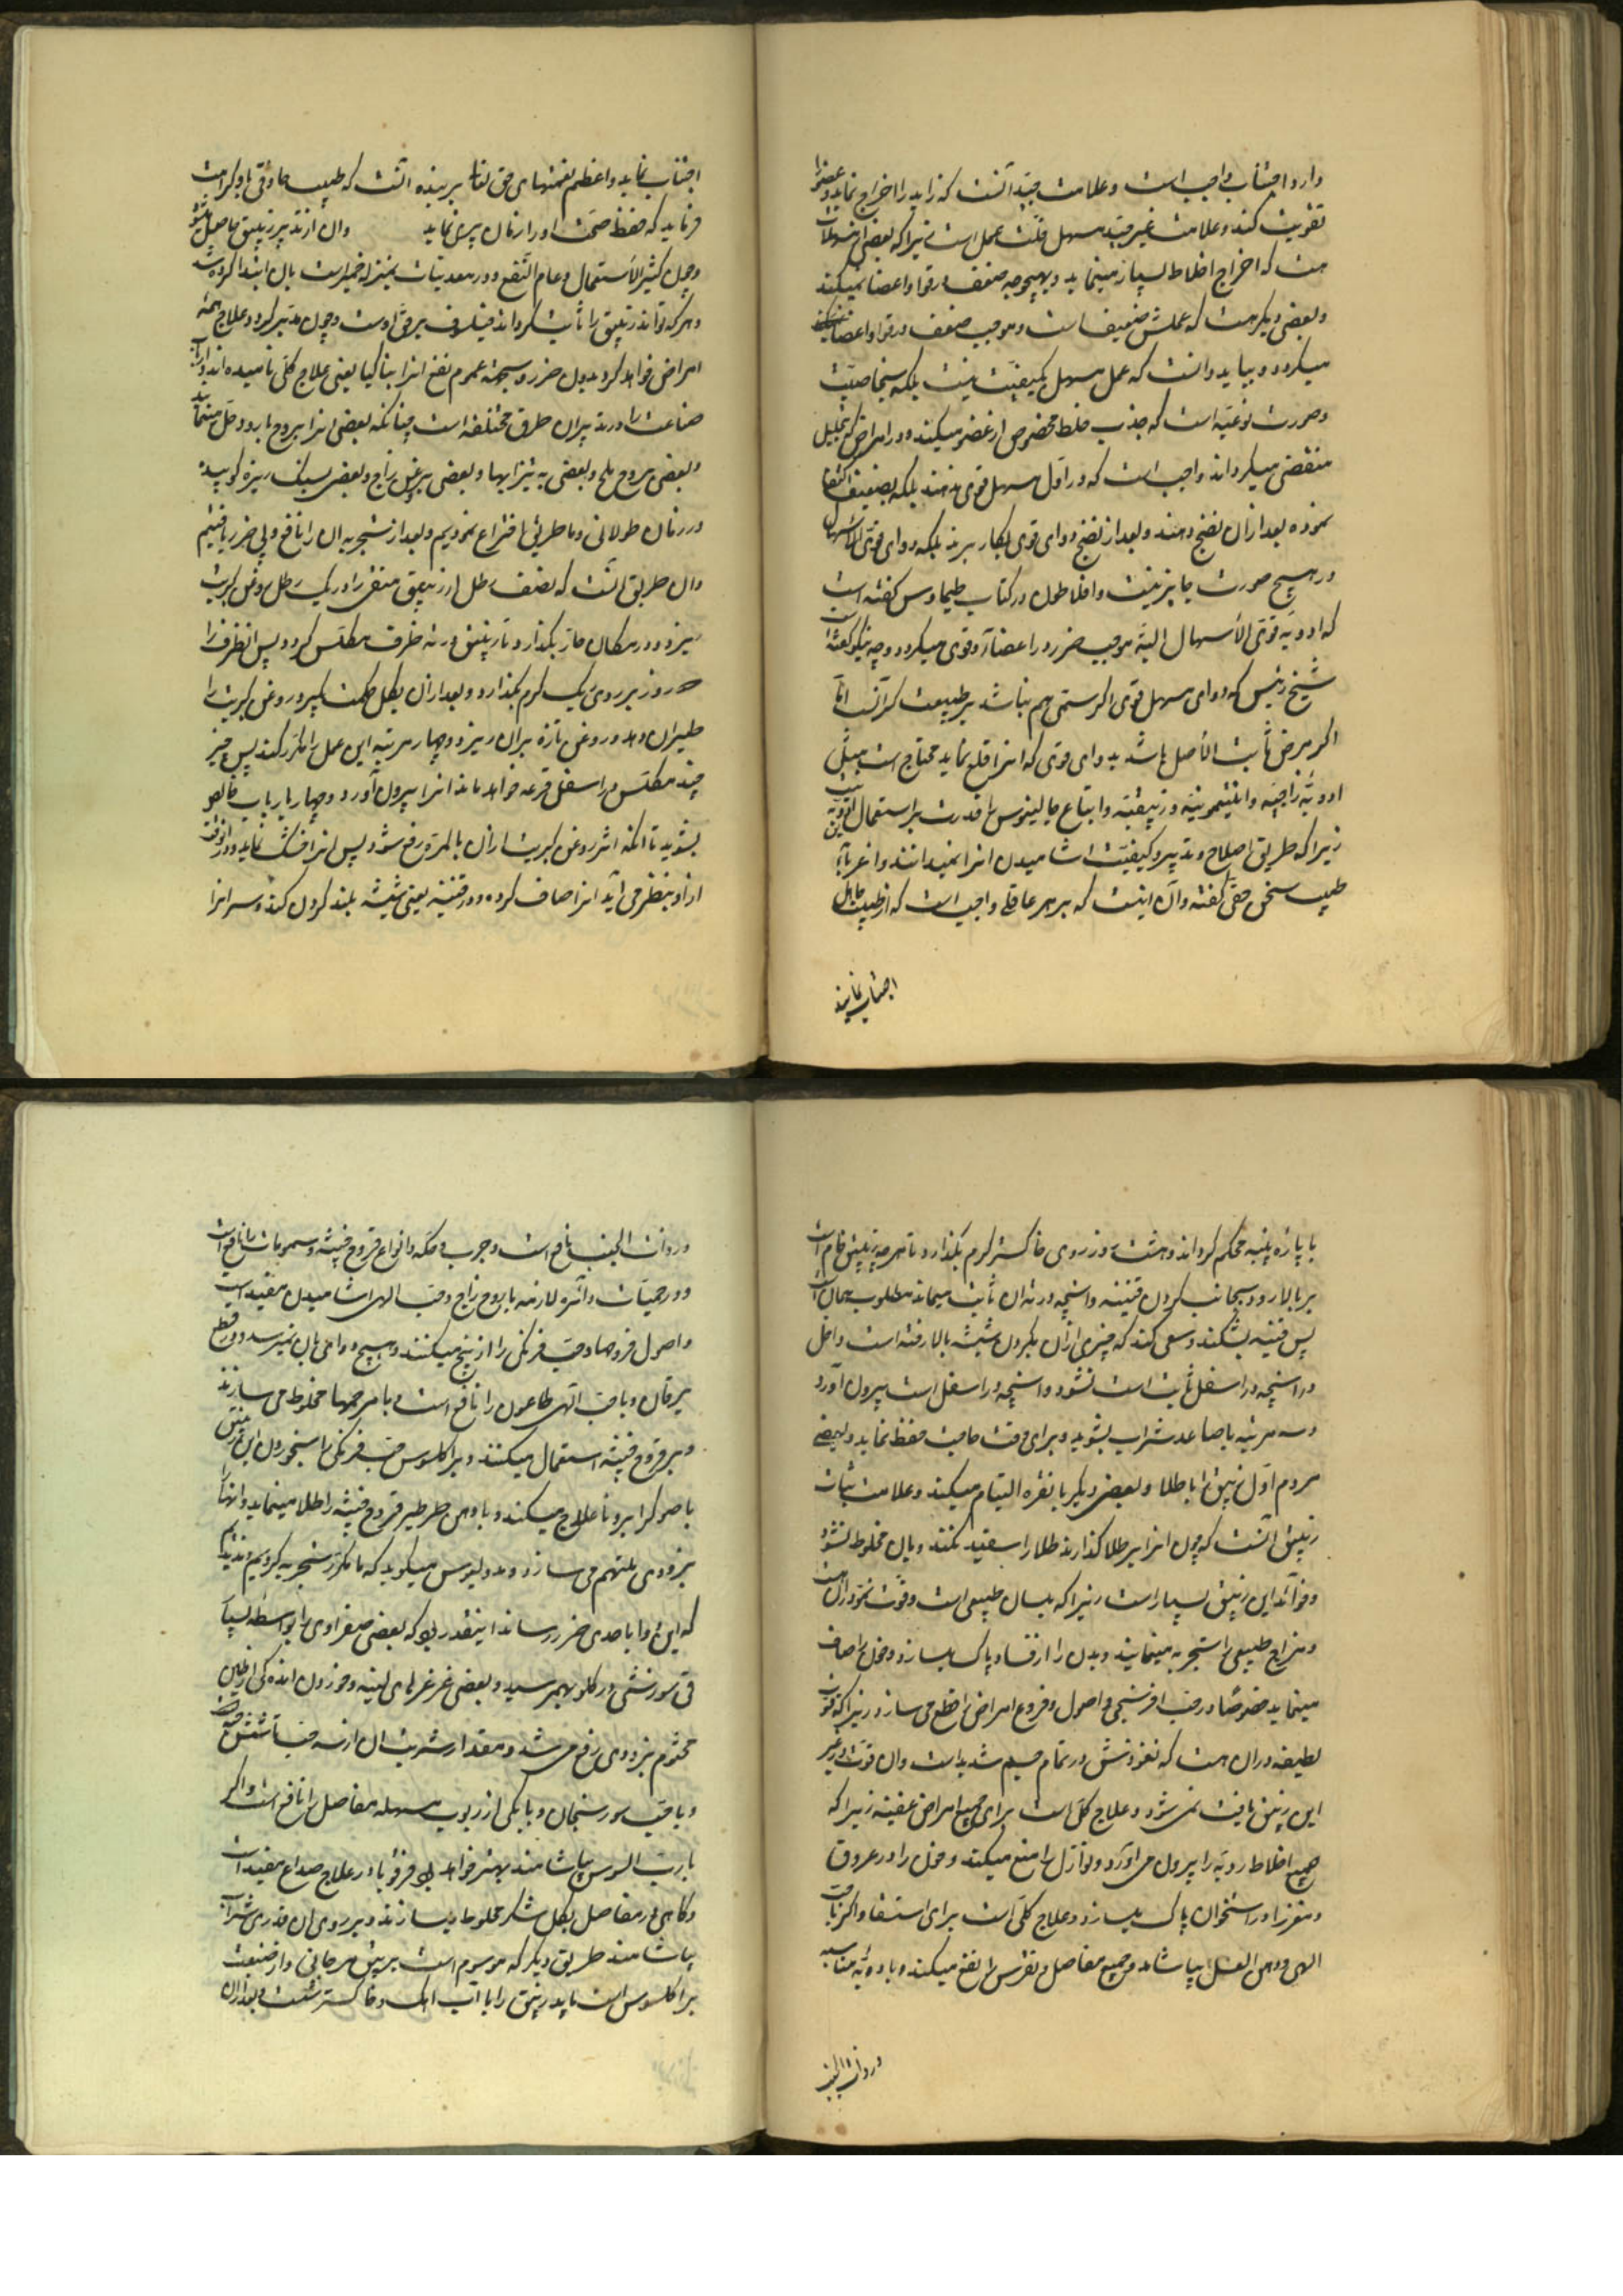 دارد اجتناب واجب است و علامت جید آنست که زاید را اخراج نماید و عضو را
تقویت کند و علامت غیر جید مسهل قلت عمل است زیرا که بعضی از مسهلات
هست که اخراج اخلاط بسیار مینماید و بهیچوجه ضعف در قوا و اعضا نمیکند
و بعضی دیگر هست که عملش ضعیف است و موجب ضعف در قوا و اعضا
میگردد و بباید دانست که عمل مسهل بکیفیت نیست بلکه بخاصیت
و صورت نوعیه است که جذب خلط مخصوص از عضو میکند و در امراض که بتحلیل
منقضی میگرداند واجب است که در اول مسهل قوی ندهند بلکه بضعیف اکتفا
نموده بعد از آن نضج دهند و بعد از نضج دوای قوی بکار برند بلکه دوای قوی الاسهال
در هیچ صورت جایز نیست و افلاطون در کتاب طیماوس گفته است
که ادویه قوی الاسهال البته موجب ضرر در اعضا و قوی میگردد و چه نیکو گفته است
شیخ رئیس که دوای مسهل قوی اگر سمی هم نباشد بر طبیعت گرانست اما
اگر مرض ثابت الاصل باشد بدوای قوی که انرا قلع نماید محتاج است مثل
ادویه زاجیه و انتیمونیه و زیبقیه و اتباع جالینوس را قدرت بر استعمال این ادویه نیست
زیرا که طریق اصلاح و تدبیر و کیفیت اشامیدن انرا نمیدانند و اغریا
طبیب سخن حقی گفته و آن اینست که بر هر عاقلی واجب است که از طبیب جاهل
اجتناب نماید
اجتناب نماید و اعظم نعمتهای حق تعالی بر بنده آنست که طبیب حاذقی باو کرامت
فرماید که حفظ صحت او را از زمان پیری نماید و ان از تدبیر زیبق حاصل میشود
و چون کثیر الاستعمال و عام النفع و در معدنیات بمنزله خمیر است بان ابتدا کرده شد
و هر که تواند زیبق را ثابت گرداند فیلسوف بر حق اوست و چون مدبر گردد علاج همه
امراض خواهد کرد بدون ضرر و بجهة عموم نفع انرا بناکیا یعنی علاج کلی نامیده اند و ارباب
صناعت را در تدبیر ان طرق مختلفه است چنانکه بعضی انرا بروح بارود حل مینمایند
و بعضی بروح ملح و بعضی به تیزابها و بعضی بروغن زاج و بعضی بسنک ریزه کوبیده
در زمان طولانی و ما طریقی اختراع نمودیم و بعد از تجربه ان را نافع و بی ضرر یافتیم
و ان طریق آنست که نصف رطل از زیبق منقی را در یک رطل روغن کبریت
ریزد و در مکان حار بگذارد تا زیبق در ته ظرف مکلس گردد پس انظرف را
ده روز بر روی ریک گرم بگذارد و بعد از ان بگل حکمت بگیرد و روغن کبریت را
طیران دهد و روغن تازه بران ریزد و چهار مرتبه این عمل را مکرر کند پس چیز
چند مکلس در اسفل قرعه خواهد ماند انرا بیرون آورد و چهار بار باب خالص
بشوید تا انکه اثر روغن کبریت از ان بالمره رفع شود پس انرا خشک نماید و در ان وقت
از او بنظر می آید انرا صاف کرده و در قنینه یعنی شیشه بلند گردن کند و سر انرا
با پاره پنبه محکم گرداند و هشت روز روی خاکستر گرم بگذارد تا هر چه زیبق خام است
بر بالا رود بجانب گردن قنینه و انچه در ته ان ثابت میماند مطلوب همان است
پس قنینه بشکند و سعی کند که چیزی از ان بگردن شیشه بالا رفته است داخل
در انچه در اسفل ثابت است نشود و انچه در اسفل است بیرون آورد
و سه مرتبه با صاعد شراب بشوید و برای وقت حاجت حفظ نماید و بعضی
مردم اول زیبق را با طلا و بعضی دیگر با نقره التیام میکنند و علامت ثبات
زیبق آنست که چون انرا بر طلا گذارند طلا را سفید نکند و بان مخلوط نشود
و فوائد این زیبق بسیار است زیرا که بلسان طبیعی است و قوت نمو در ان هست
و مزاج طبیعی را تجربه مینمایند و بدن را از فساد پاک میسازد و خون را صاف
مینماید خصوصا در حب افرنجی و اصول و فروع امراض را قطع می سازد زیرا که قوت
لطیفه در ان هست که نفوذش در تمام جسم شدید است و ان قوت در غیر
این زیبق یافت نمی شود و علاج کلی است برای جمیع امراض عفنیه زیرا که
جمیع اخلاط ردیه را بیرون می آورد و نوازل را منع میکند و خون را در عروق
و مغز را در استخوان پاک میسازد و علاج کلی است برای استسقا و اگر با حب
الهی و دهن العسل بیاشامد جمیع مفاصل و نقرس را نفع میکند و با ادویه مناسبه
در ذات الجنب
در ذات الجنب نافع است و جرب و حکه و انواع قروح خبیثه و سمومات را نافع است
و در حمیات دائره لازمه با روح زاج و حب الهی اشامیدن مفید است
و اصول قروحها و حب فرنکی را از بیخ میکند و هیچ دوا می بان نمیرسد و در قطع
یرقان و با حب الهی طاعون را نافع است و با مرهمها مخلوط می سازند
و بر قروح خبیثه استعمال میکنند و براکلسوس حب فرنکی را بخوردن این زیبق
با صوکرا بروتا علاج میکند و با دهن طرطیر قروح خبیثه را طلا مینماید و انها را
بزودی ملتهم می سازد و مدولیوس میگوید که ما مکرر تجربه کردیم و ندیدیم
که این دوا باحدی ضرر رساند اینقدر بود که بعضی صفراوی را بواسطه بسیاری
قی سوزشی در گلو بهم رسید و بعضی غرغرهای لینه و خوردن اندکی از طین
مختوم بزودی رفع می شد و مقدار شربت ان از سه حبه تا شش حبه است
و با حب سورنجان و با یکی از ربوب مسهله مفاصل را نافع است و اگر
با رب السوس بیاشامند بهتر خواهد بود و فرفونیا در علاج صداع مفید است
و گاهی در مفاصل بگل شکر مخلوط میسازند و بر روی ان قدری شراب
بیاشامند طریق دیگر که موسوم است بزیبق مرجانی و از صنعت
براکلسوس است باید زیبق را با آب اهک و خاکستر شست و بعد از ان